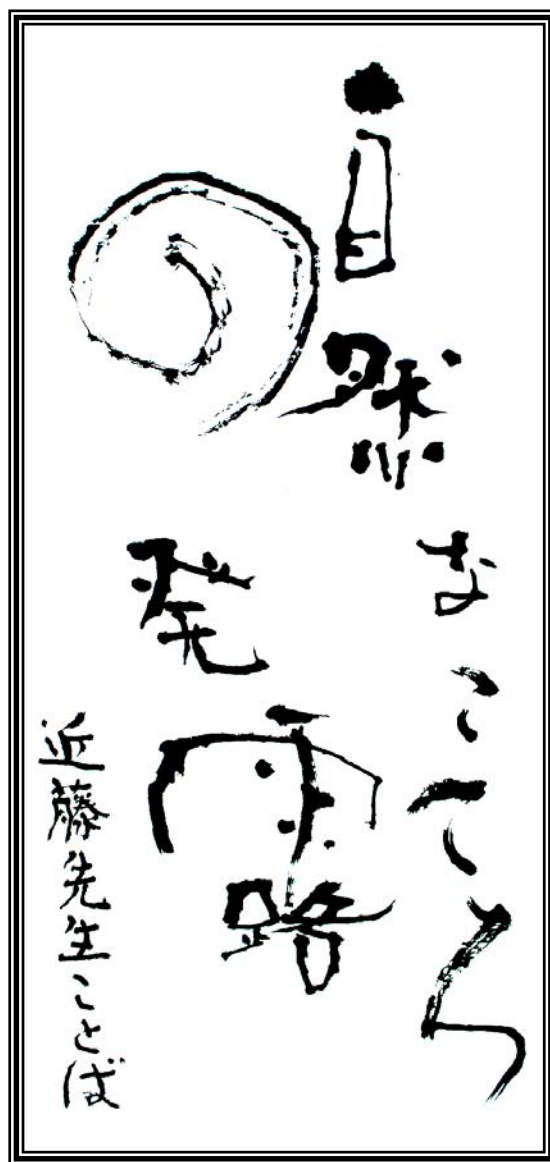 自然なこころ
の発露
近藤先生ことば